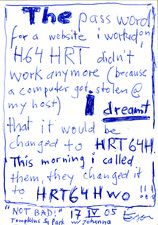 The password
for a website i worked on,
H64 HRT didn't
work anymore (because
a computer got stolen @
my host) I dreamt
that it would be
changed to HRT64H.
This morning i called
them, they changed it
to HRT64HWO !!!
"NOT BAD!" 17 IV 05
Tompkins Sq Park w/ Johanna